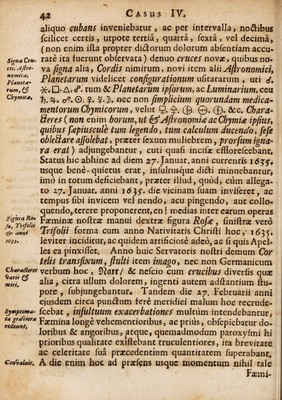 42 Casus IV.
aliquo cubans inveniebatur, ac per intervalla, noctibus
scilicet certis, utpote tertiâ, quartâ, sextâ, vel decimâ,
(non enim ista propter dictorum dolorum absentiam accu-
Signa Cru-
cis, Astro-
nomica,
Planeta-
rum,
& Chymica.
ratè ita fuerunt observata) denuo cruces novæ, quibus no-
va signa alia, Cordis nimirum, novi item alii Astronomici,
Planetarum videlicet configurationum usitatarum, uti ☌.
⚹. □. △. ☍. tum & Planetarum ipsorum, ac Luminarium, ceu
♄. ♃. ♂. ☉. ♀. ☿. ☽. nec non simplicium quorundam medica-
mentorum Chymicorum, velut &c. Chara-
cteres (non enim horum, ut & Astronomiæ ac Chymiæ ipsius,
quibus sæpiusculè tum legendo, tum calculum ducendo, sese
oblectare assolebat, præter sexum muliebrem, prorsum igna-
ra erat) adjungebantur; cuti quasi incisæ efflorescebant.
Status hic abhinc ad diem 27. Januar. anni currentis 1635,
usque benè-quietus erat, insultusque dicti minuebantur,
imò in totum deficiebant, præter illud, quòd, cùm allega-
to 27. Januar. anni 1635. die vicinam suam inviseret, ac
tempus sibi invicem vel nendo, acu pingendo, aut collo-
quendo, terere proponerent, en! medias inter earum operas
Figura Ro-
sæ, Trifolii
& anno
1635.
Fœminæ nostræ manui dextræ figura Rosæ, sinistræ verò
Trifolii forma cum anno Nativitatis Christi hoc, 1635.
leviter inciditur, ac quidem artificiosè adeò, ac si quis Apel-
les ea pinxisset. Anno huic Servatoris nostri demum Cor
telis transfixum, stulti item imago, nec non Germanicum
Characteres
varii &
verbum hoc, Narr/ & nescio cum crucibus diversis quæ
alia, citra ullum dolorem, ingenti autem adstantium stu-
pore, subjungebantur. Tandem die 27. Februarii anni
ejusdem circa punctum ferè meridiei malum hoc recrude-
Symptoma-
ta graviora
redeunt.
scebat, insultuum exacerbationes multùm intendebantur,
Fœmina longè vehementioribus, ac priùs, obsepiebatur do-
loribus & angoribus, atque, quemadmodum paroxysmi hi
prioribus qualitate existebant truculentiores, ita brevitate
ac celeritate suâ præcedentium quantitatem superabant.
A die enim hoc ad præsens usque momentum nihil tale
Fœmi-